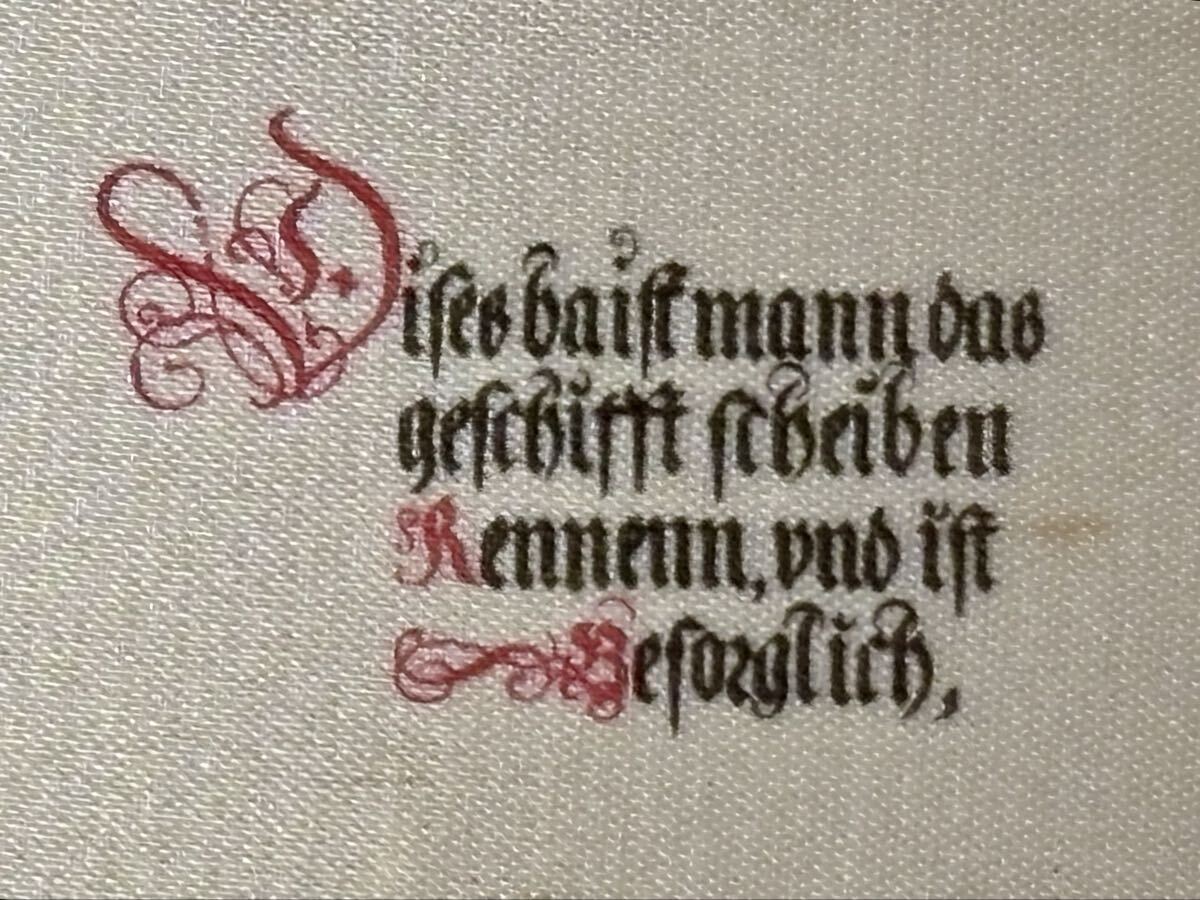 Dises haist mann das
geschifft scheiben
Rennenn, vnd ist
Besorglich,